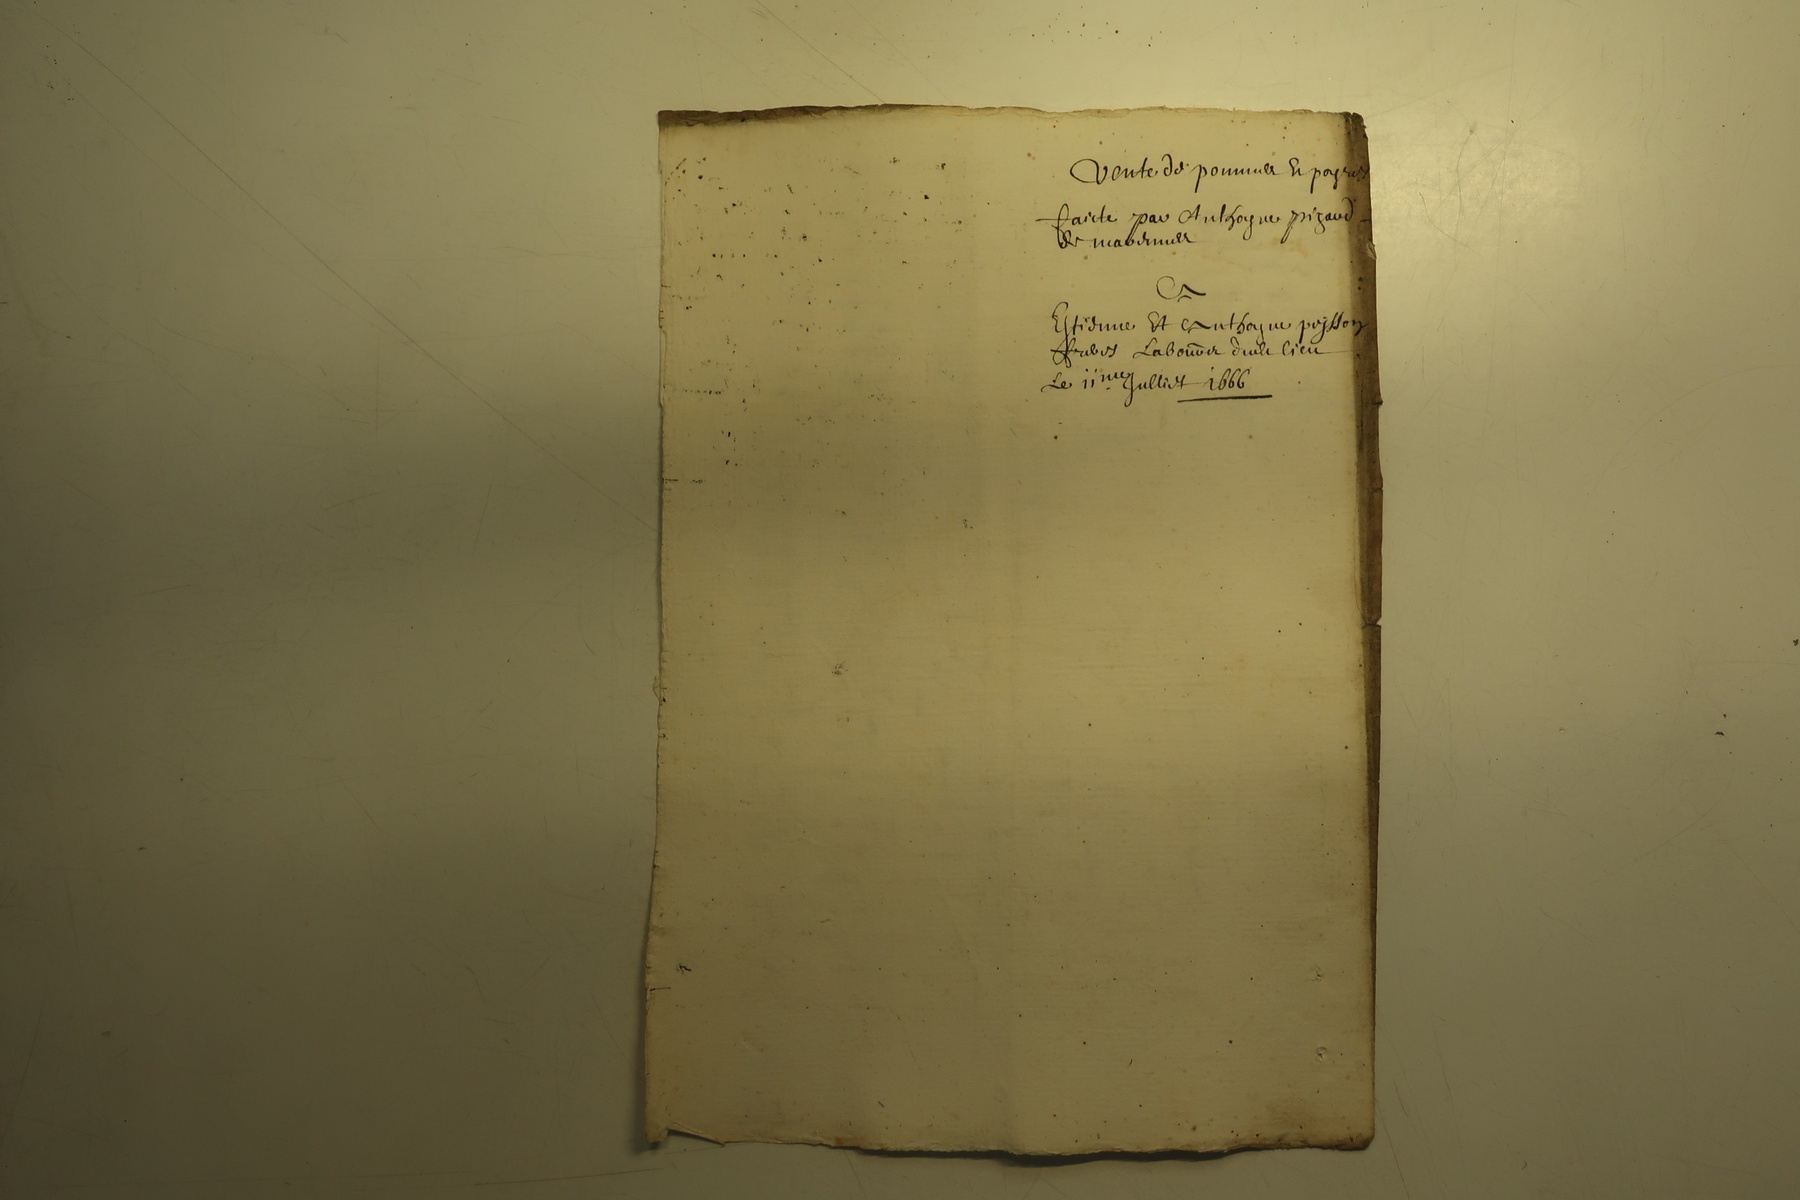 Vente de pommier et poyrier
faicte par Anthoyne pigaud
de
A
Estienne et Anthoyne peysson
freres Laboure dudt lieu
Le iime Julliet 1666